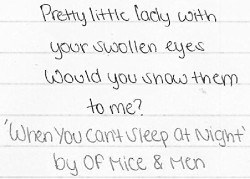 Pretty little lady with
your swollen eyes
Would you show them
to me?
'When You Can't Sleep at Night'
by Of Mice & Men